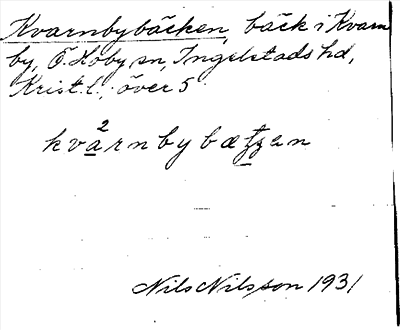 Kvarnbybäcken, bäck i Kvarn
by, Ö. Hoby sn, Ingelstads hd,
Krist. l., över 5
2
kvarnbybætʒen
Nils Nilsson 1931